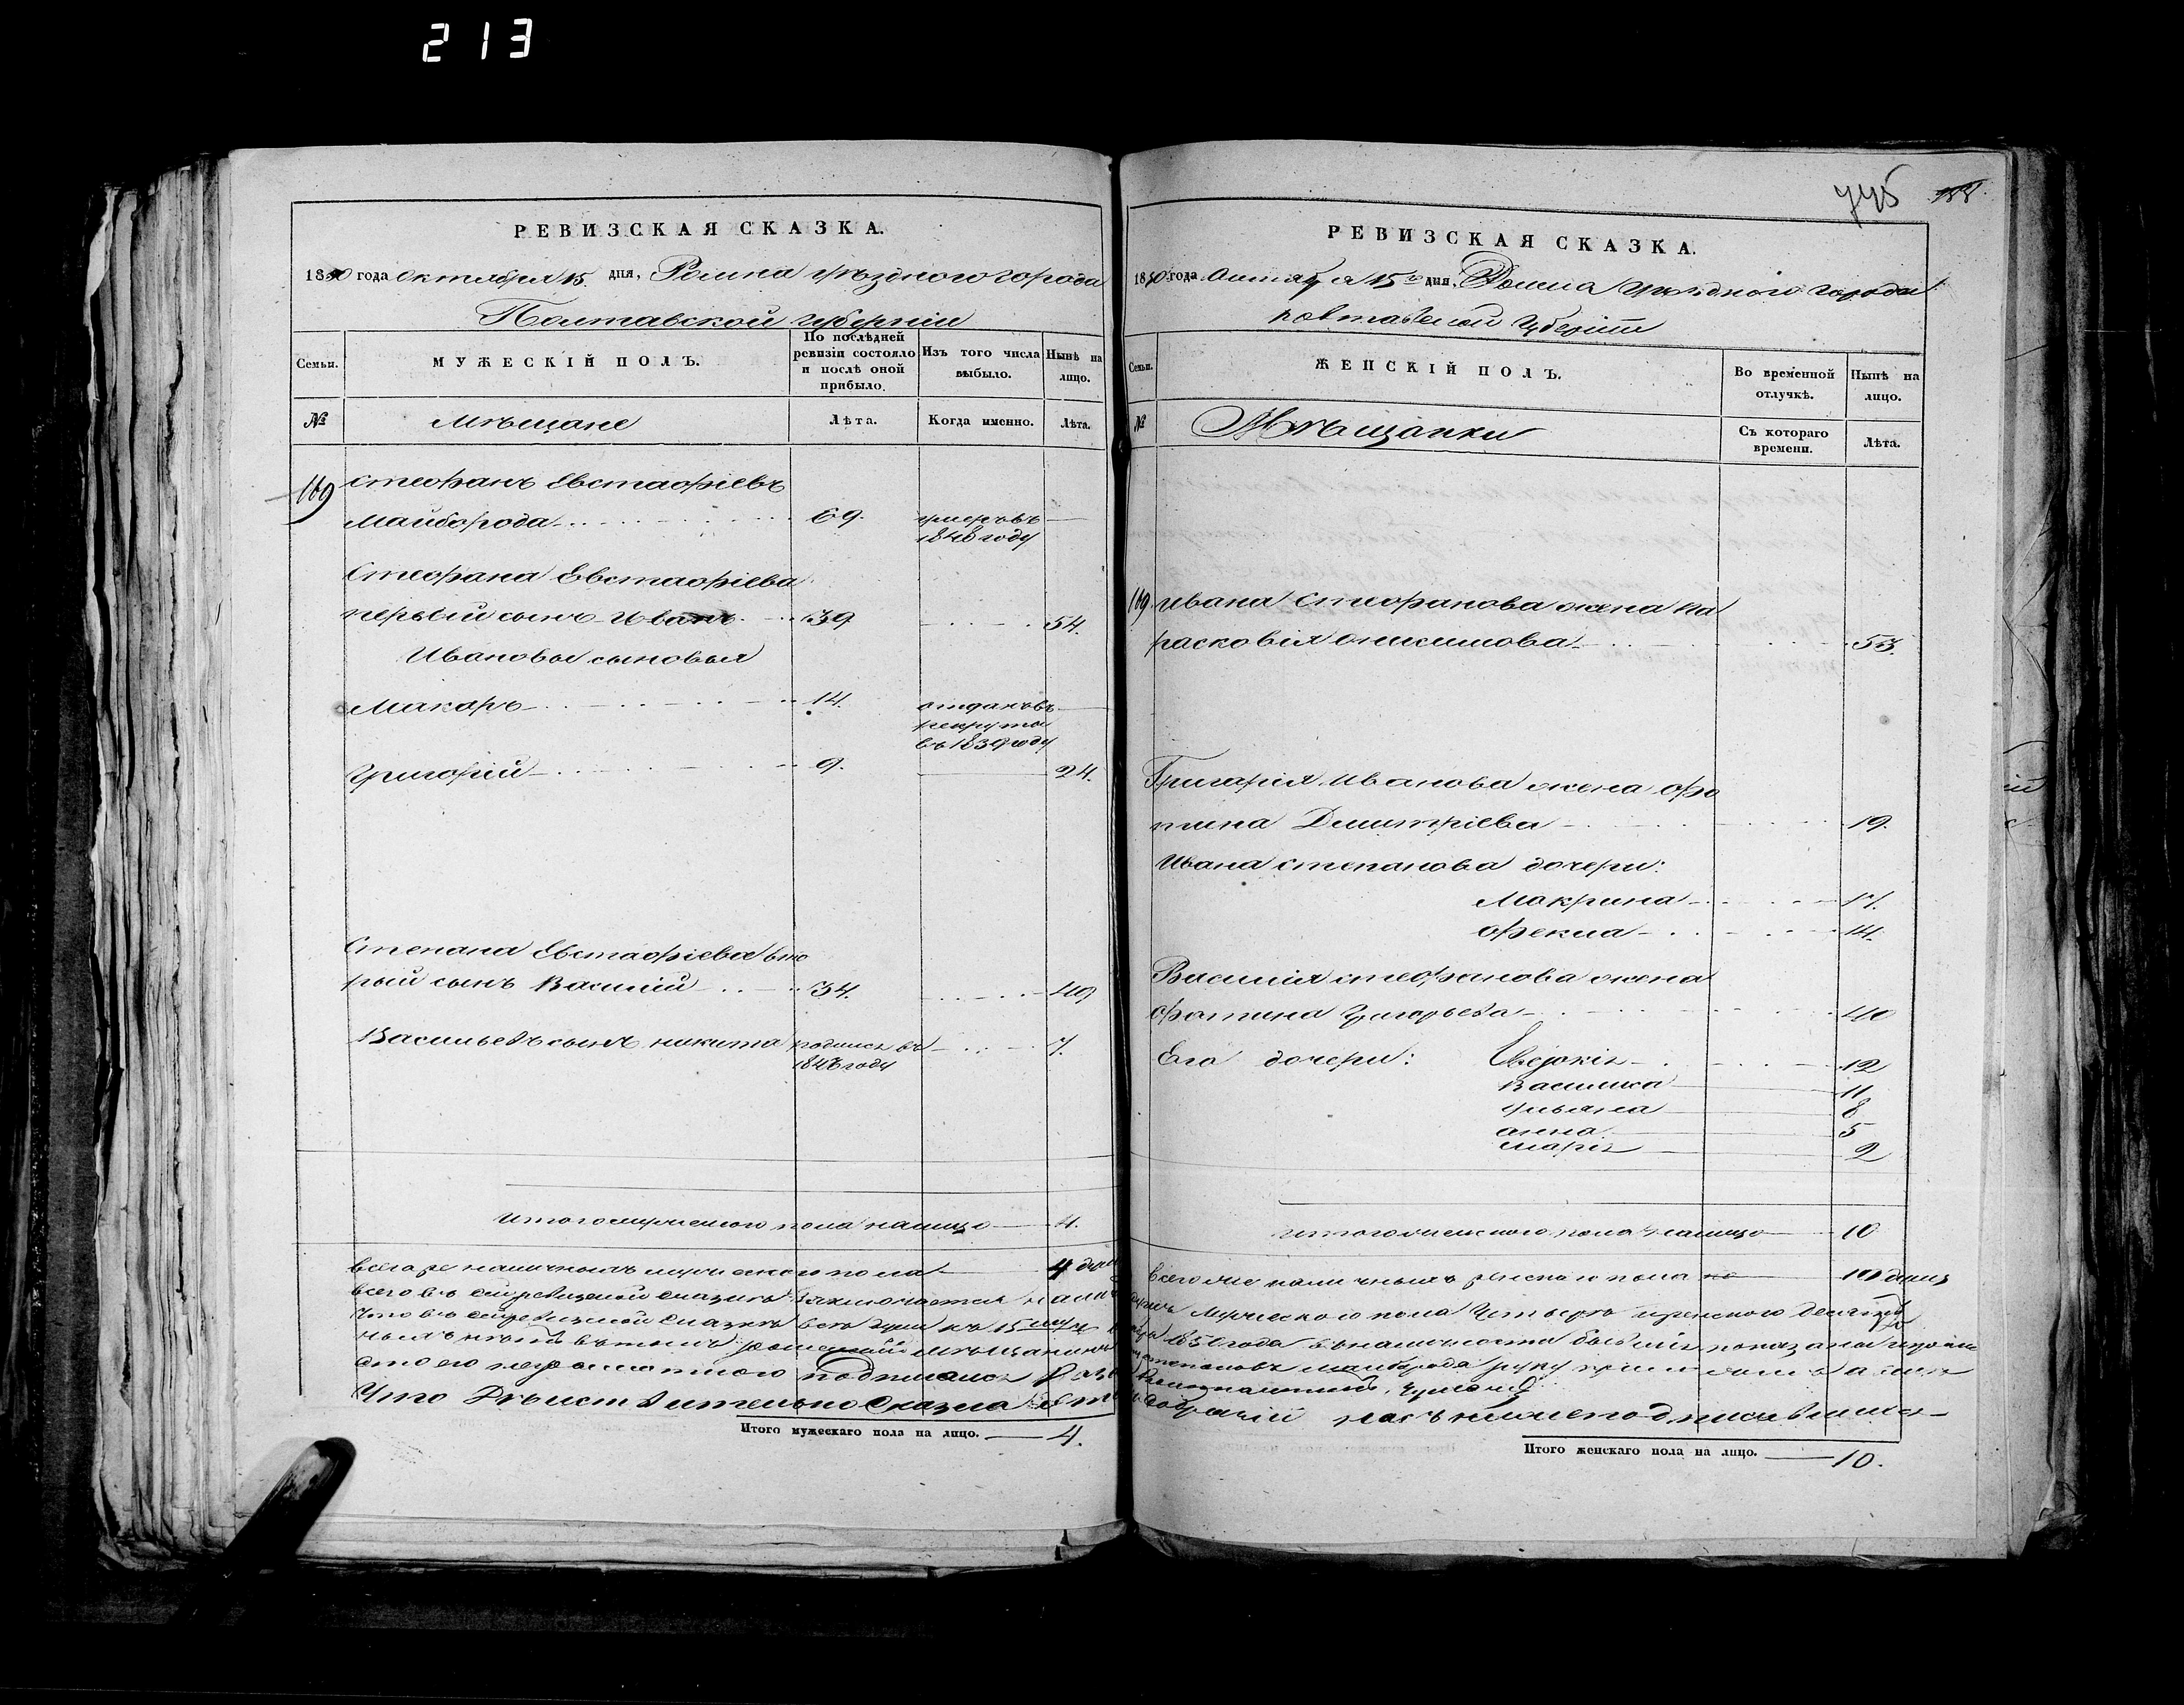 213
РЕВИЗСКАЯ СКАЗКА.
1850 года октября 15 дня, Ромна уѣздного города
Полтавской губерніи
Семьи.
МУЖЕСКІЙ ПОЛЪ.
По послѣдней ревизіи состояло и послѣ оной прибыло.
Изъ того числа выбыло.
Нынѣ на лицо.
№
Мѣщане
Лѣта.
Когда именно.
Лѣта.
169 Стефанъ Евстафіевъ
Майборода 69. умеръ въ
1848 году
Стефана Евстафіева
первый сынъ Иванъ 39 54.
Ивановы сыновья
Макаръ 14. отданъ въ
рекруты
въ 1839 году
Григорій 9. 24.
Степана Евстафіева вто
рый сынъ Василій 34. 49
Васильевъ сынъ никита родился въ 7.
1843 году
Итого мужеского пола налицо 4.
всего
наличныхъ мужеского пола 4 душ
Что Дѣйствительно
Итого мужескаго пола на лицо. 4.
745 188
РЕВИЗСКАЯ СКАЗКА.
1850 года Октября 15 дня, Ромна уѣздного города
полтавской губерніи
Семьи.
ЖЕНСКІЙ ПОЛЪ.
Во временной отлучкѣ.
Нынѣ на лицо.
№
Мѣщанки
Съ котораго времени.
Лѣта.
169. Ивана Стефанова жена Па
расковія онисимова 53.
Григорія Иванова жена фо
тина Димитріева 19.
Ивана степанова дочери:
Макрина 17.
фекла 14.
Василія стефанова жена
фотина григорьева 40
Его дочери: Евдокія 12
Василиса 11
ульяна 8
анна 5
марія 2
итого женского пола налицо 10
всего
наличныхъ женского пола 10 душъ
мужеского пола четыре женского десять
1850 года
майборода руку
Итого женскаго пола на лицо. 10.